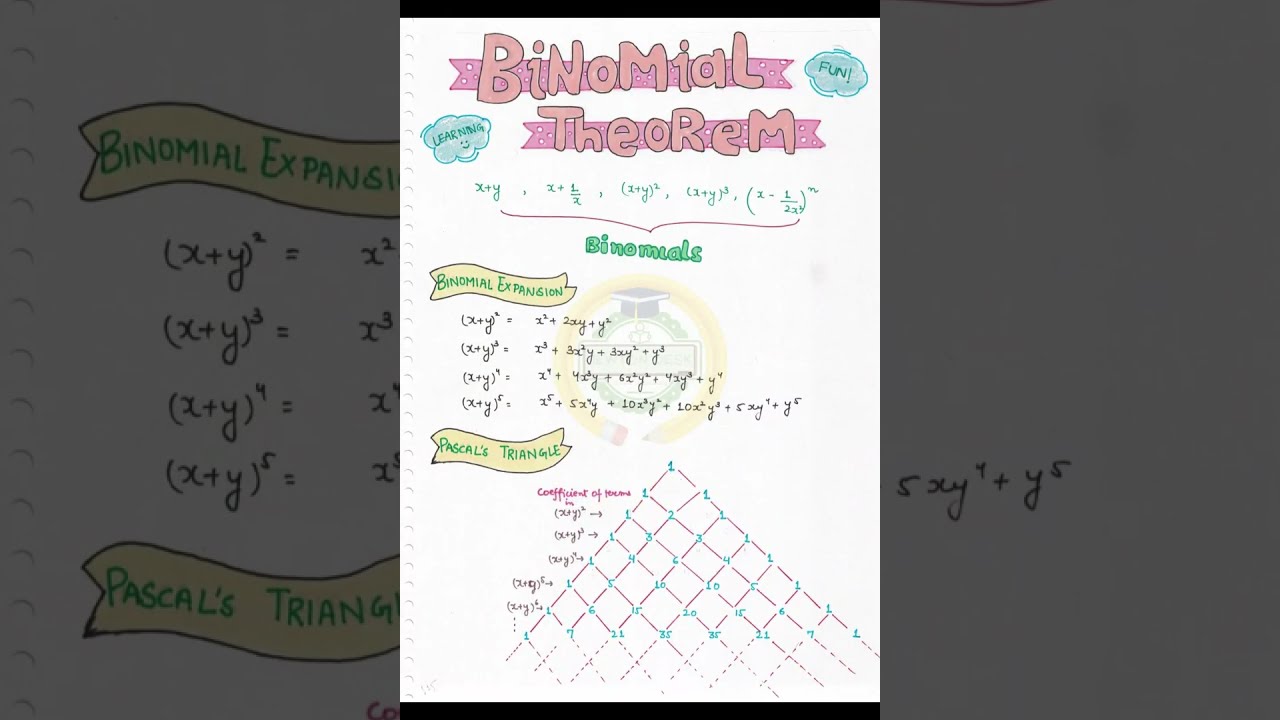 BiNoMial
TheoReM
FUN!
LEARNING
x+y , x + 1/x , (x+y)², (x+y)³, (x - 1/2x²)ⁿ
Binomials
BINOMIAL EXPANSION
(x+y)² = x² + 2xy + y²
(x+y)³ = x³ + 3x²y + 3xy² + y³
(x+y)⁴ = x⁴ + 4x³y + 6x²y² + 4xy³ + y⁴
(x+y)⁵ = x⁵ + 5x⁴y + 10x³y² + 10x²y³ + 5xy⁴ + y⁵
PASCAL'S TRIANGLE
1
Coefficient of terms 1 1
in
(x+y)² → 1 2 1
(x+y)³ → 1 3 3 1
(x+y)⁴ → 1 4 6 4 1
(x+y)⁵ → 1 5 10 10 5 1
(x+y)⁶ → 1 6 15 20 15 6 1
1 7 21 35 35 21 7 1
BINOMIAL EXPANSI
(x+y)² = x²
(x+y)³ = x³
(x+y)⁴ = x⁴
(x+y)⁵ = x⁵
5xy⁴ + y⁵
PASCAL'S TRIANGL